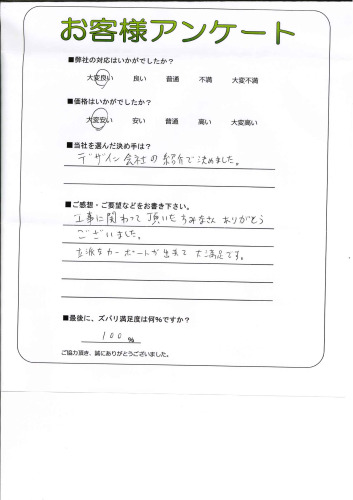 お客様アンケート
■弊社の対応はいかがでしたか?
大変良い 良い 普通 不満 大変不満
■価格はいかがでしたか?
大変安い 安い 普通 高い 大変高い
■当社を選んだ決め手は?
デザイン会社の紹介で決めました。
■ご感想・ご要望などをお書き下さい。
工事に関わって頂いたみなさんありがとう
ございました。
立派なカーポートが出来て大満足です。
■最後に、ズバリ満足度は何%ですか?
100%
ご協力頂き、誠にありがとうございました。